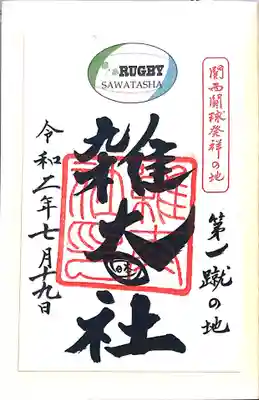 RUGBY
SAWATASHA
関西闘球発祥の地
第一蹴の地
雑太社
令和二年七月十九日